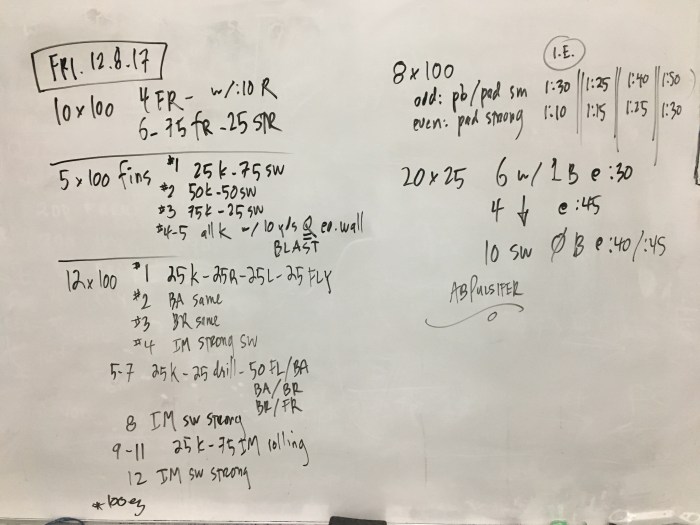 FRI. 12.8.17
10x100 4 FR- w/:10 R
6- 75 FR -25 STR
5x100 fins #1 25k-75sw
#2 50k-50sw
#3 75k-25sw
#4-5 all k w/10 yds @ ea. wall
BLAST
12x100 #1 25k-25R-25L-25 FLY
#2 BA same
#3 BR same
#4 IM strong sw
5-7 25k-25 drill-50 FL/BA
BA/BR
BR/FR
8 IM sw strong
9-11 25k-75 IM rolling
12 IM sw strong
*100 ez
I.E.
8x100
odd: pb/pad sm 1:30 1:25 1:40 1:50
even: pad strong 1:10 1:15 1:25 1:30
20x25 6 w/ 1B @ :30
4 ↓ @ :45
10 sw ØB @ :40/:45
ABPULSIFER